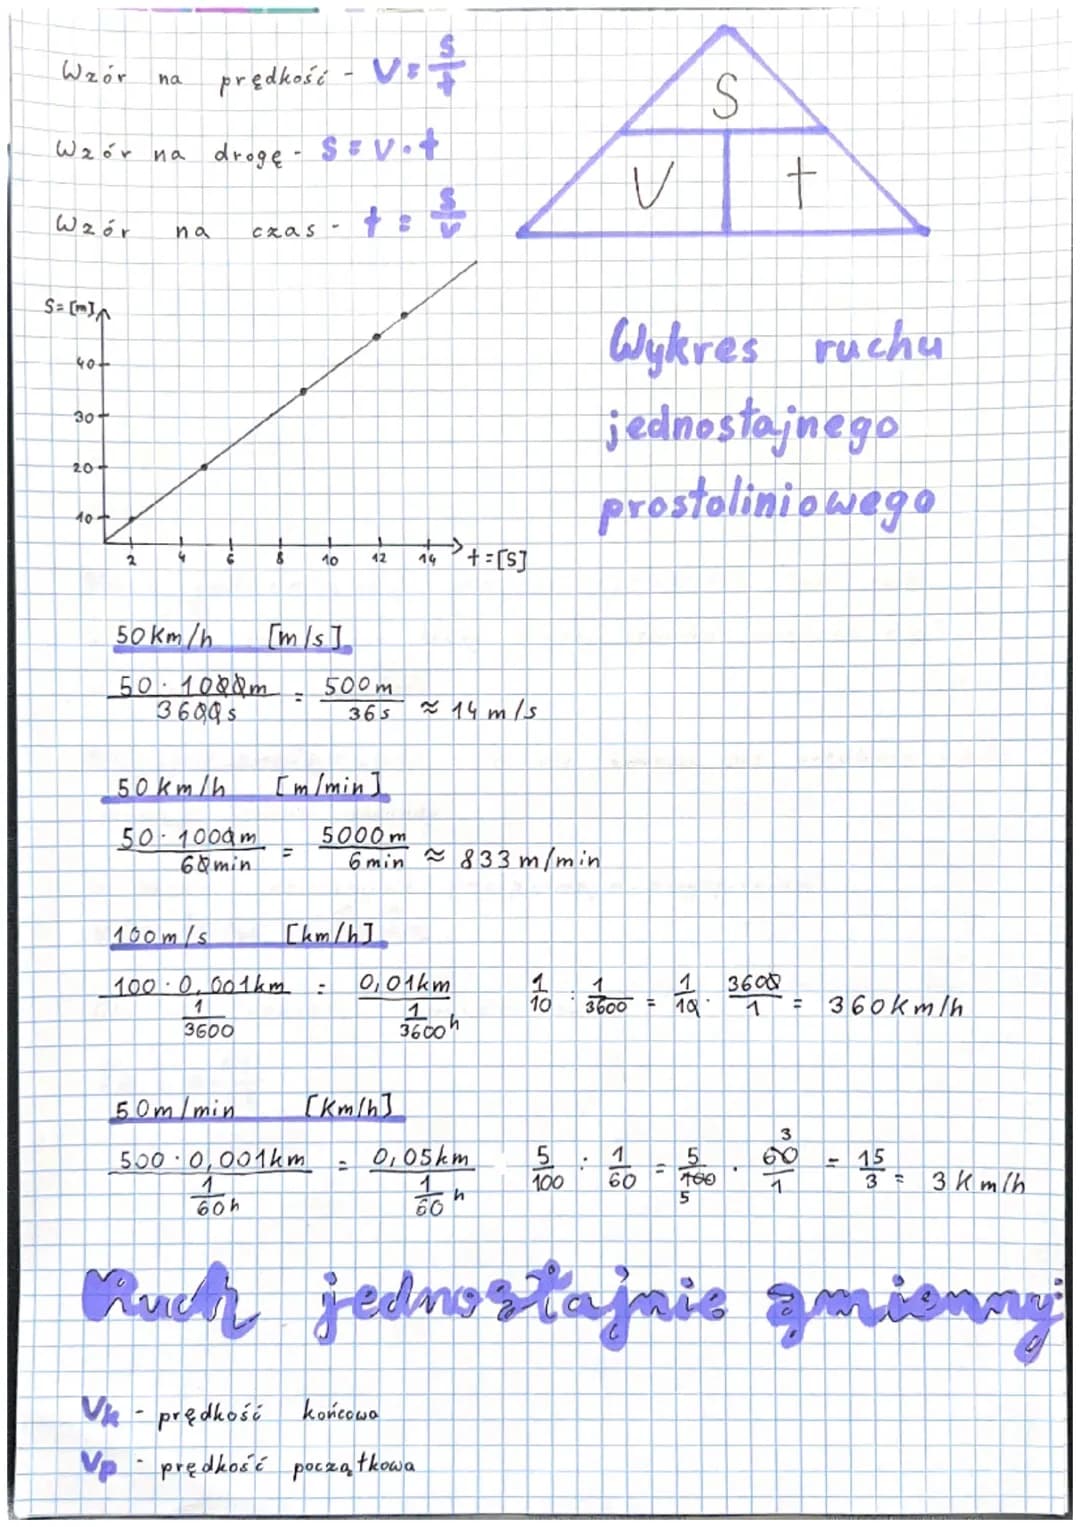 Wzór na prędkość - V = s/t
Wzór na drogę - s = v · t
Wzór na czas - t = s/v
S
V t
S=[m]
40
30
20
10
2 4 6 8 10 12 14 t=[s]
Wykres ruchu
jednostajnego
prostoliniowego
50 km/h [m/s]
50 · 1000m / 3600s = 500m / 36s ≈ 14 m/s
50 km/h [m/min]
50 · 1000m / 60min = 5000m / 6min ≈ 833 m/min
100m/s [km/h]
100 · 0,001km / 1/3600 = 0,01km / 1/3600 h 1/10 : 1/3600 = 1/10 · 3600/1 = 360km/h
50m/min [km/h]
500 · 0,001km / 1/60h = 0,05km / 1/60 h 5/100 : 1/60 = 5/100 5 · 3 60/1 = 15/3 = 3 km/h
Ruch jednostajnie zmienny:
Vk - prędkość końcowa
Vp - prędkość początkowa